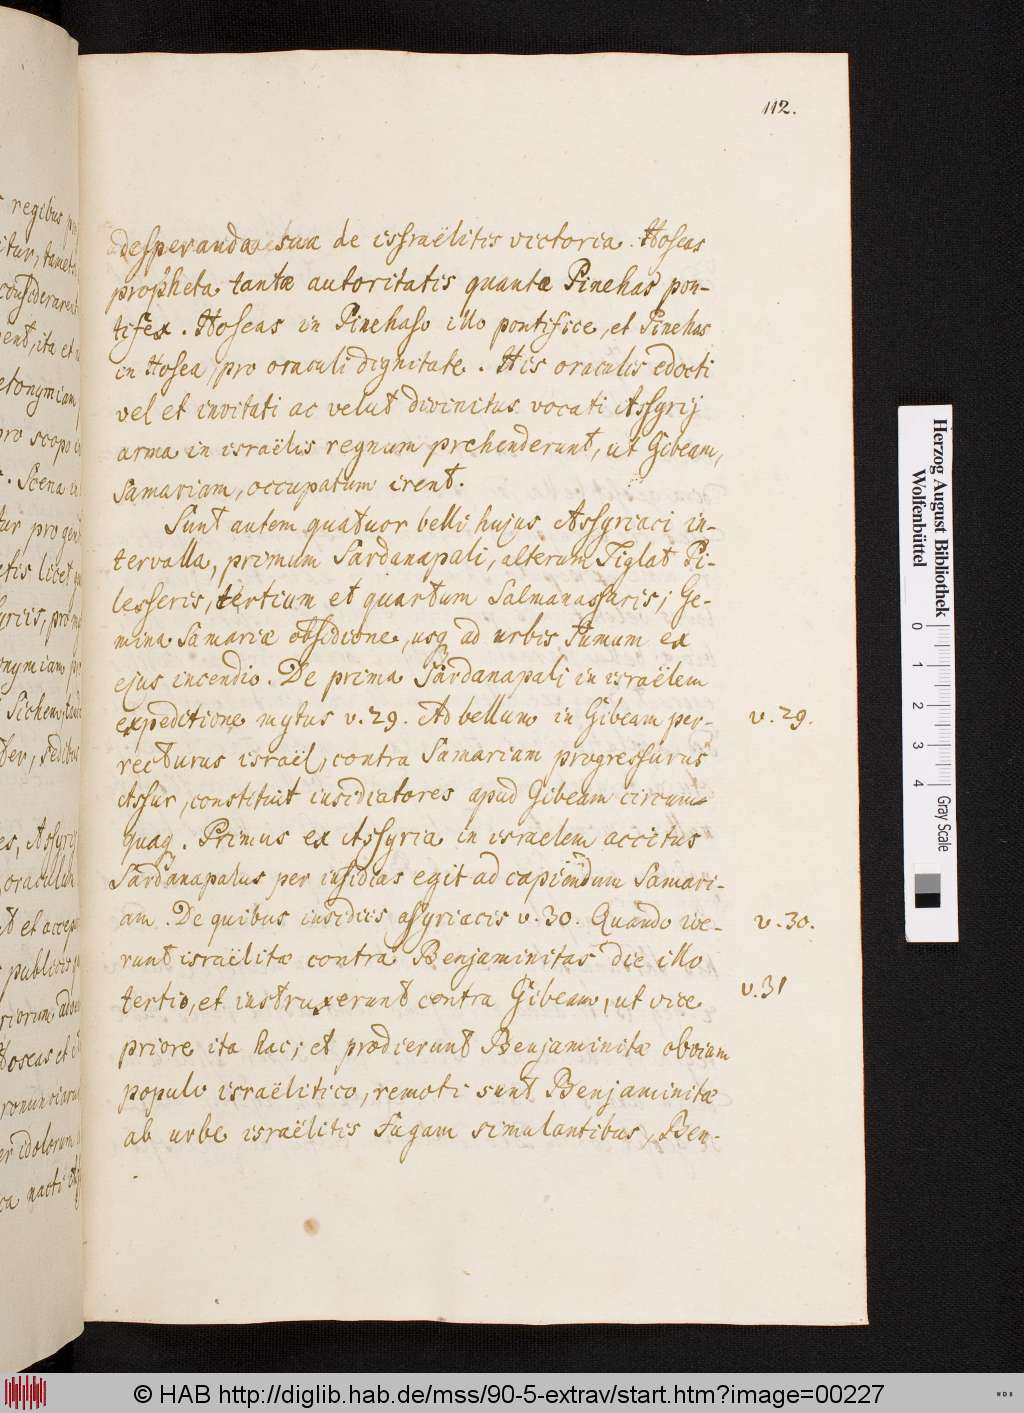 112.
desperanda sua de issraëlitis victoria. Hoseas
propheta tantæ autoritatis quantæ Pinehas pon-
tifex. Hoseas in Pinehaso illo pontifice, et Pinehas
in Hosea pro oraculi dignitate. His oraculis edocti
vel et invitati ac velut divinitus vocati Assyrij
arma in israëlis regnum prehenderunt, ut Gibeam,
Samariam, occupatum irent.
Sunt autem quatuor belli hujus Assyriaci in-
tervalla, primum Sardanapali, alterum Tiglat Pi-
lesseris, tertium et quartum Salmanassaris; Ge-
mina Samariæ obsidione, usq ad urbis fumum ex
ejus incendio. De prima Sardanapali in israëlem
expeditione mytus v. 29. Ad bellum in Gibeam per- v. 29.
recturus israël, contra Samariam progressurus
Assur, constituit insidiatores apud Gibeam circum-
quaq. Primus ex Assyria in israelem accitus
Sardanapalus per insidias egit ad capiendum Samari-
am. De quibus insidiis assyriacis v. 30. Quando ive- v. 30.
runt israëlitæ contra Benjaminitas die illo
tertio, et instruxerunt contra Gibeam, ut vice v. 31
priore ita hac; et prædierunt Benjaminitæ obviam
populo israëlitico, remoti sunt Benjaminitæ
ab urbe israëlitis fugam simulantibus, Ben-
Herzog August Bibliothek
Wolfenbüttel
0 1 2 3 4 Gray Scale
© HAB http://diglib.hab.de/mss/90-5-extrav/start.htm?image=00227